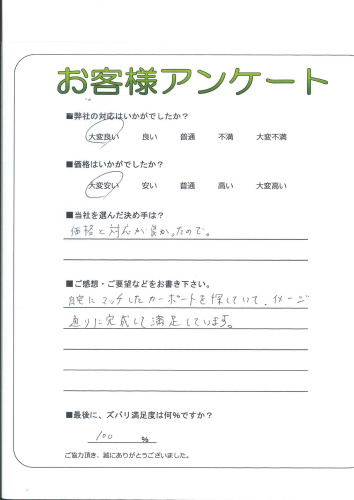 お客様アンケート
■弊社の対応はいかがでしたか？
大変良い 良い 普通 不満 大変不満
■価格はいかがでしたか？
大変安い 安い 普通 高い 大変高い
■当社を選んだ決め手は？
価格と対応が良かったので。
■ご感想・ご要望などをお書き下さい。
自宅にマッチしたカーポートを探していて、イメージ
通りに完成して満足しています。
■最後に、ズバリ満足度は何%ですか？
100 %
ご協力頂き、誠にありがとうございました。